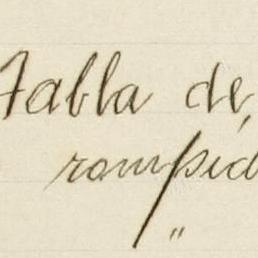 Tabla de
rompid
"